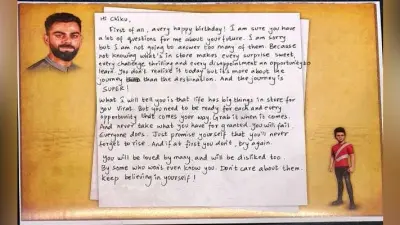 Hi Chiku,
First of all, a very happy birthday! I am sure you have
a lot of questions for me about your future. I am sorry
but I am not going to answer too many of them. Because
not knowing what's in store makes every surprise sweet,
every challenge thrilling and every disappointment an opportunity to
learn. You don't realise it today but its more about the
journey than the destination. And the journey is
SUPER!
What I will tell you is that life has big things in store for
you Virat. But you need to be ready for each and every
opportunity that comes your way. Grab it when it comes.
And never take what you have for granted. You will fail
Everyone does. Just promise yourself that you'll never
forget to rise. And if at first you don't, try again.
You will be loved by many, and will be disliked too
By some who won't even know you. Don't care about them.
Keep believing in yourself!